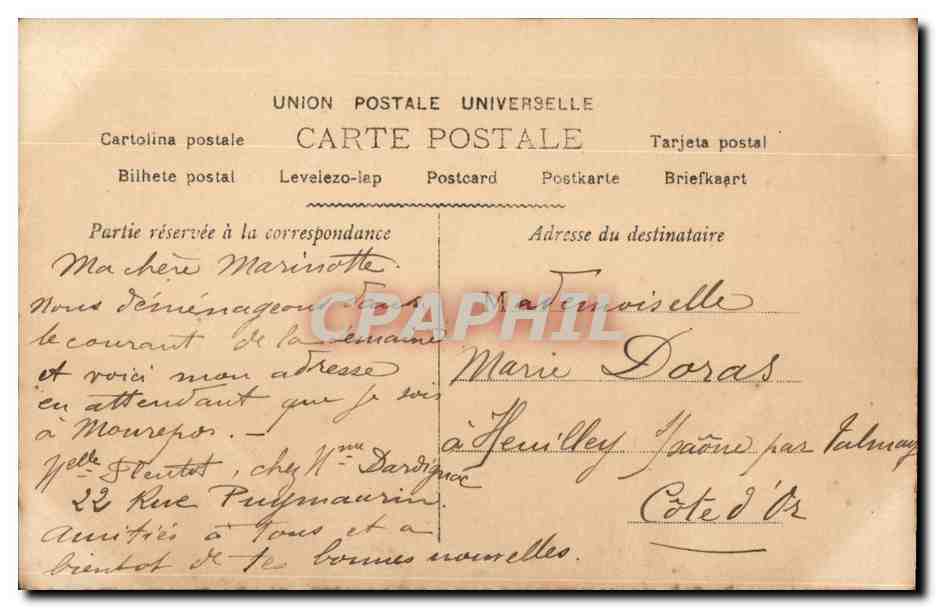 UNION POSTALE UNIVERSELLE
CARTE POSTALE
Cartolina postale
Tarjeta postal
Bilhete postal Levelezo-lap Postcard Postkarte Briefkaart
Partie réservée à la correspondance
Ma chère Marinotte.
nous déménageons dans
le courant de la semaine
et voici mon adresse
en attendant que je sois
à Monrepos. —
Melle Plentet, chez Mme Dardignac
22 Rue Puymaurin.
Amitiés à Tous et a
bientot de tes bonnes nouvelles.
Adresse du destinataire
Mademoiselle
Marie Doras
à Heuilley s/saône par Talmay
Côte d'Or
CPAPHIL